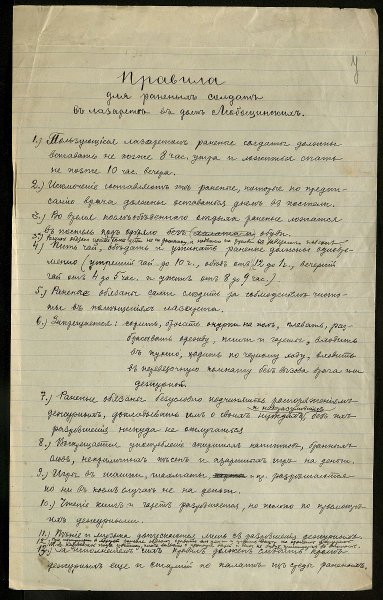 Правила
для раненыхъ солдатъ
въ лазаретѣ въ домѣ
1.) Пользующіеся лазаретомъ раненые солдаты должны
вставать не позже 8 час. утра и ложиться спать
не позже 10 час. вечера.
2.) Исключеніе составляютъ тѣ раненые, которые по пред-
санію врача должны оставаться днемъ въ постели.
3.) Во время послѣобѣденнаго отдыха раненые ложатся
въ постель подъ одѣяло безъ обуви.
4.) Пить чай, обѣдать и ужинать раненые должны одновре-
менно (утренній чай до 10 г., обѣдъ отъ 12 до 1 г., вечерній
чай отъ 4 до 5 час. и ужинъ отъ 8 до 9 час.)
5.) Раненые обязаны сами слѣдить за соблюденіемъ чисто-
ты въ помѣщеніи лазарета.
6.) Запрещается: сорить, бросать окурки на полъ, плевать, раз-
брасывать одежду, книги и газеты, входить
въ кухню, ходить по черному ходу, входить
въ перевязочную комнату безъ вызова врача или
дежурной.
7.) Раненые обязаны безусловно подчиняться распоряженіямъ
дежурныхъ, докладывать имъ о своихъ нуждахъ, безъ ихъ
разрѣшенія никуда не отлучаться.
8.) Запрещается употребленіе спиртныхъ напитковъ, бранныхъ
словъ, неприличныхъ пѣсенъ и азартныхъ игръ на деньги.
9.) Игры въ шашки, шахматы и пр. разрѣшаются
но ни въ коемъ случаѣ не на деньги.
10.) Чтеніе книгъ и газетъ разрѣшается, но только по
ихъ дежурными.
11.) Пѣніе и музыка допускаются лишь съ разрѣшенія дежурныхъ
13.) За исполненіемъ сихъ правилъ долженъ слѣдить кромѣ
дежурныхъ еще и старшій по палатѣ изъ среды раненыхъ.